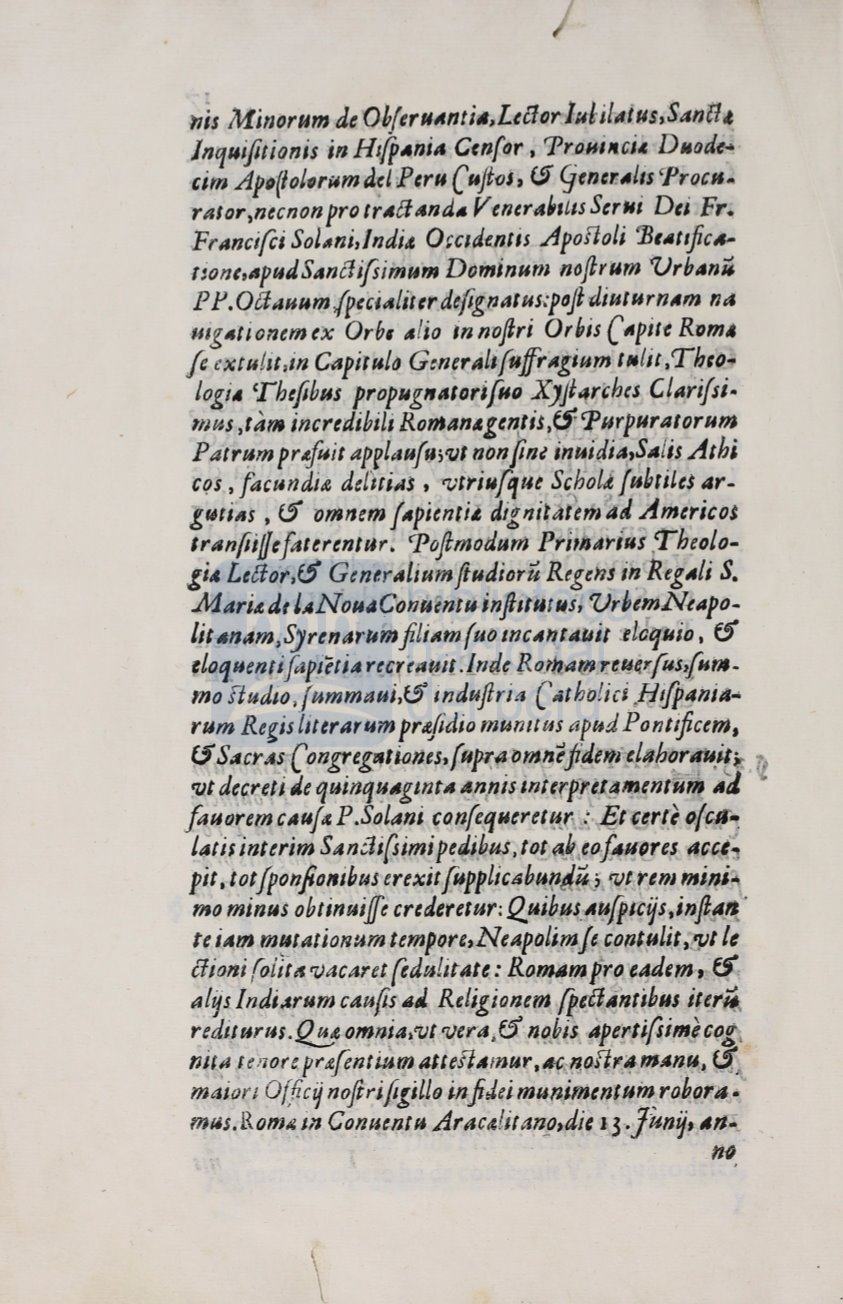 nis Minorum de Obſeruantia, Lector Iubilatus, Sanctæ
Inquiſitionis in Hiſpania Cenſor, Prouinciæ Duode-
cim Apoſtolorum del Peru Cuſtos, & Generalis Procu-
rator, necnon pro tractanda Venerabilis Serui Dei Fr.
Franciſci Solani, Indiæ Occidentis Apoſtoli Beatifica-
tione, apud Sanctiſsimum Dominum noſtrum Vrbanũ
PP. Octauum, ſpecialiter deſignatus: poſt diuturnam na
uigationem ex Orbe alio in noſtri Orbis Capite Roma
ſe extulit, in Capitulo Generali ſuffragium tulit, Theo-
logiæ Theſibus propugnatori ſuo Xyſtarches Clariſsi-
mus, tàm incredibili Romanæ gentis, & Purpuratorum
Patrum præfuit applauſu; vt non ſine inuidia, Salis Athi
cos, facundiæ delitias, vtriuſque Scholæ ſubtiles ar-
gutias, & omnem ſapientiæ dignitatem ad Americos
tranſiiſſe faterentur. Poſtmodum Primarius Theolo-
giæ Lector, & Generalium ſtudiorũ Regens in Regali S.
Mariæ de la Noua Conuentu inſtitutus, Vrbem Neapo-
litanam, Syrenarum filiam ſuo incantauit eloquio, &
eloquenti ſapiẽtia recreauit. Inde Romam reuerſus, ſum-
mo ſtudio, ſumma ui, & induſtria Catholici Hiſpania-
rum Regis literarum præſidio munitus apud Pontificem,
& Sacras Congregationes, ſupra omnẽ fidem elaborauit;
vt decreti de quinquaginta annis interpretamentum ad
fauorem cauſæ P. Solani conſequeretur: Et certè oſcu-
latis interim Sanctiſsimi pedibus, tot ab eo fauores acce-
pit, tot ſponſionibus erexit ſupplicabundũ; vt rem mini-
mo minus obtinuiſſe crederetur: Quibus auſpicijs, inſtan
te iam mutationum tempore, Neapolim ſe contulit, vt le
ctioni ſolita vacaret ſedulitate: Romam pro eadem, &
alijs Indiarum cauſis ad Religionem ſpectantibus iterũ
rediturus. Quæ omnia, vt vera, & nobis apertiſsimè cog
nita tenore præſentium atteſtamur, ac noſtra manu, &
maiori Officij noſtri ſigillo in fidei munimentum robora-
mus. Romæ in Conuentu Aracælitano, die 13. Junij, an-
no